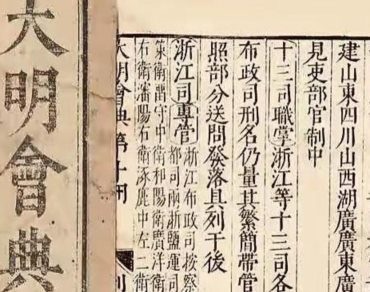 建山東四川山西湖廣廣東廣
見吏部官制中
十三司職掌浙江等十三司各
布政司刑名仍量其繁簡帶管
照部分送問發落具列于後
浙江司專管
浙江布政司按察
都司兩浙鹽運司
衛留守中衛和陽衛廣洋衛
右衛瀋陽右衛涿鹿中左二衛
大明會典第十
大明會典